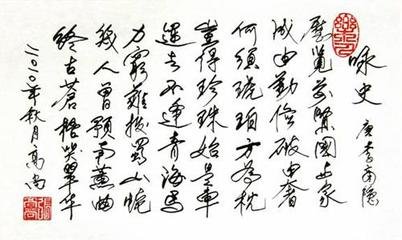 咏史 唐 李商隐
歷覽前賢國與家
成由勤儉破由奢
何須琥珀方為枕
豈得珍珠始是車
運去不逢青海馬
力窮難拔蜀山蛇
幾人曾預南薰曲
終古蒼梧哭翠华
年秋月高尚